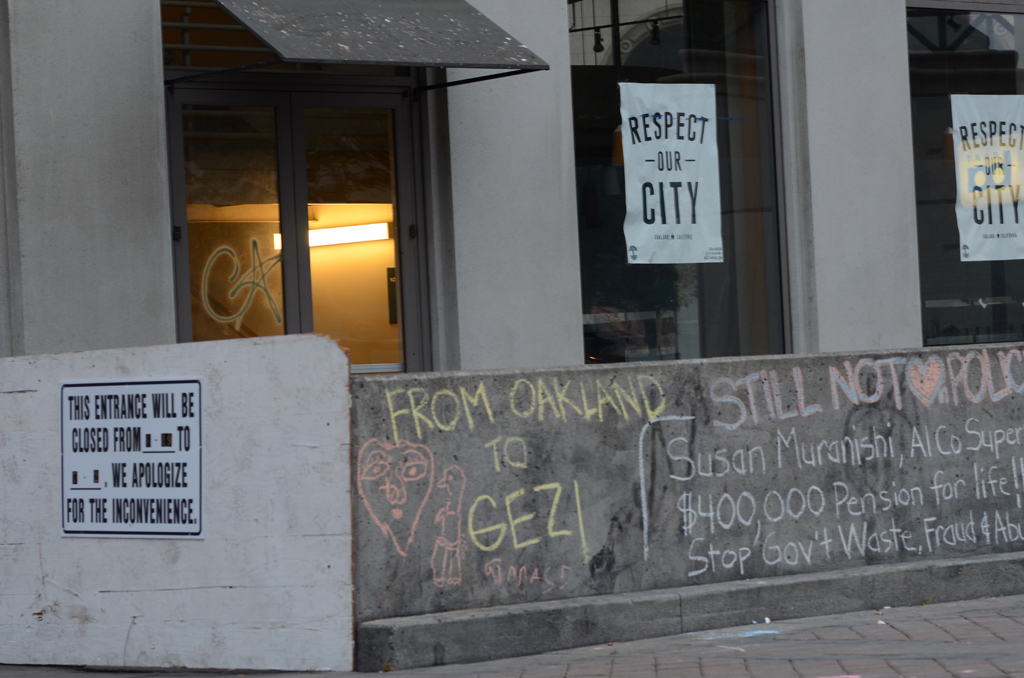 RESPECT
- OUR -
CITY
OAKLAND ★ CALIFORNIA
RESPECT
- OUR -
CITY
CA
THIS ENTRANCE WILL BE
CLOSED FROM TO
. WE APOLOGIZE
FOR THE INCONVENIENCE.
FROM OAKLAND
TO
GEZI
STILL NOT ♥ POLIC
Susan Muranishi, Al Co Super
$400,000 Pension for life!!
Stop Gov't Waste, Fraud & Abu